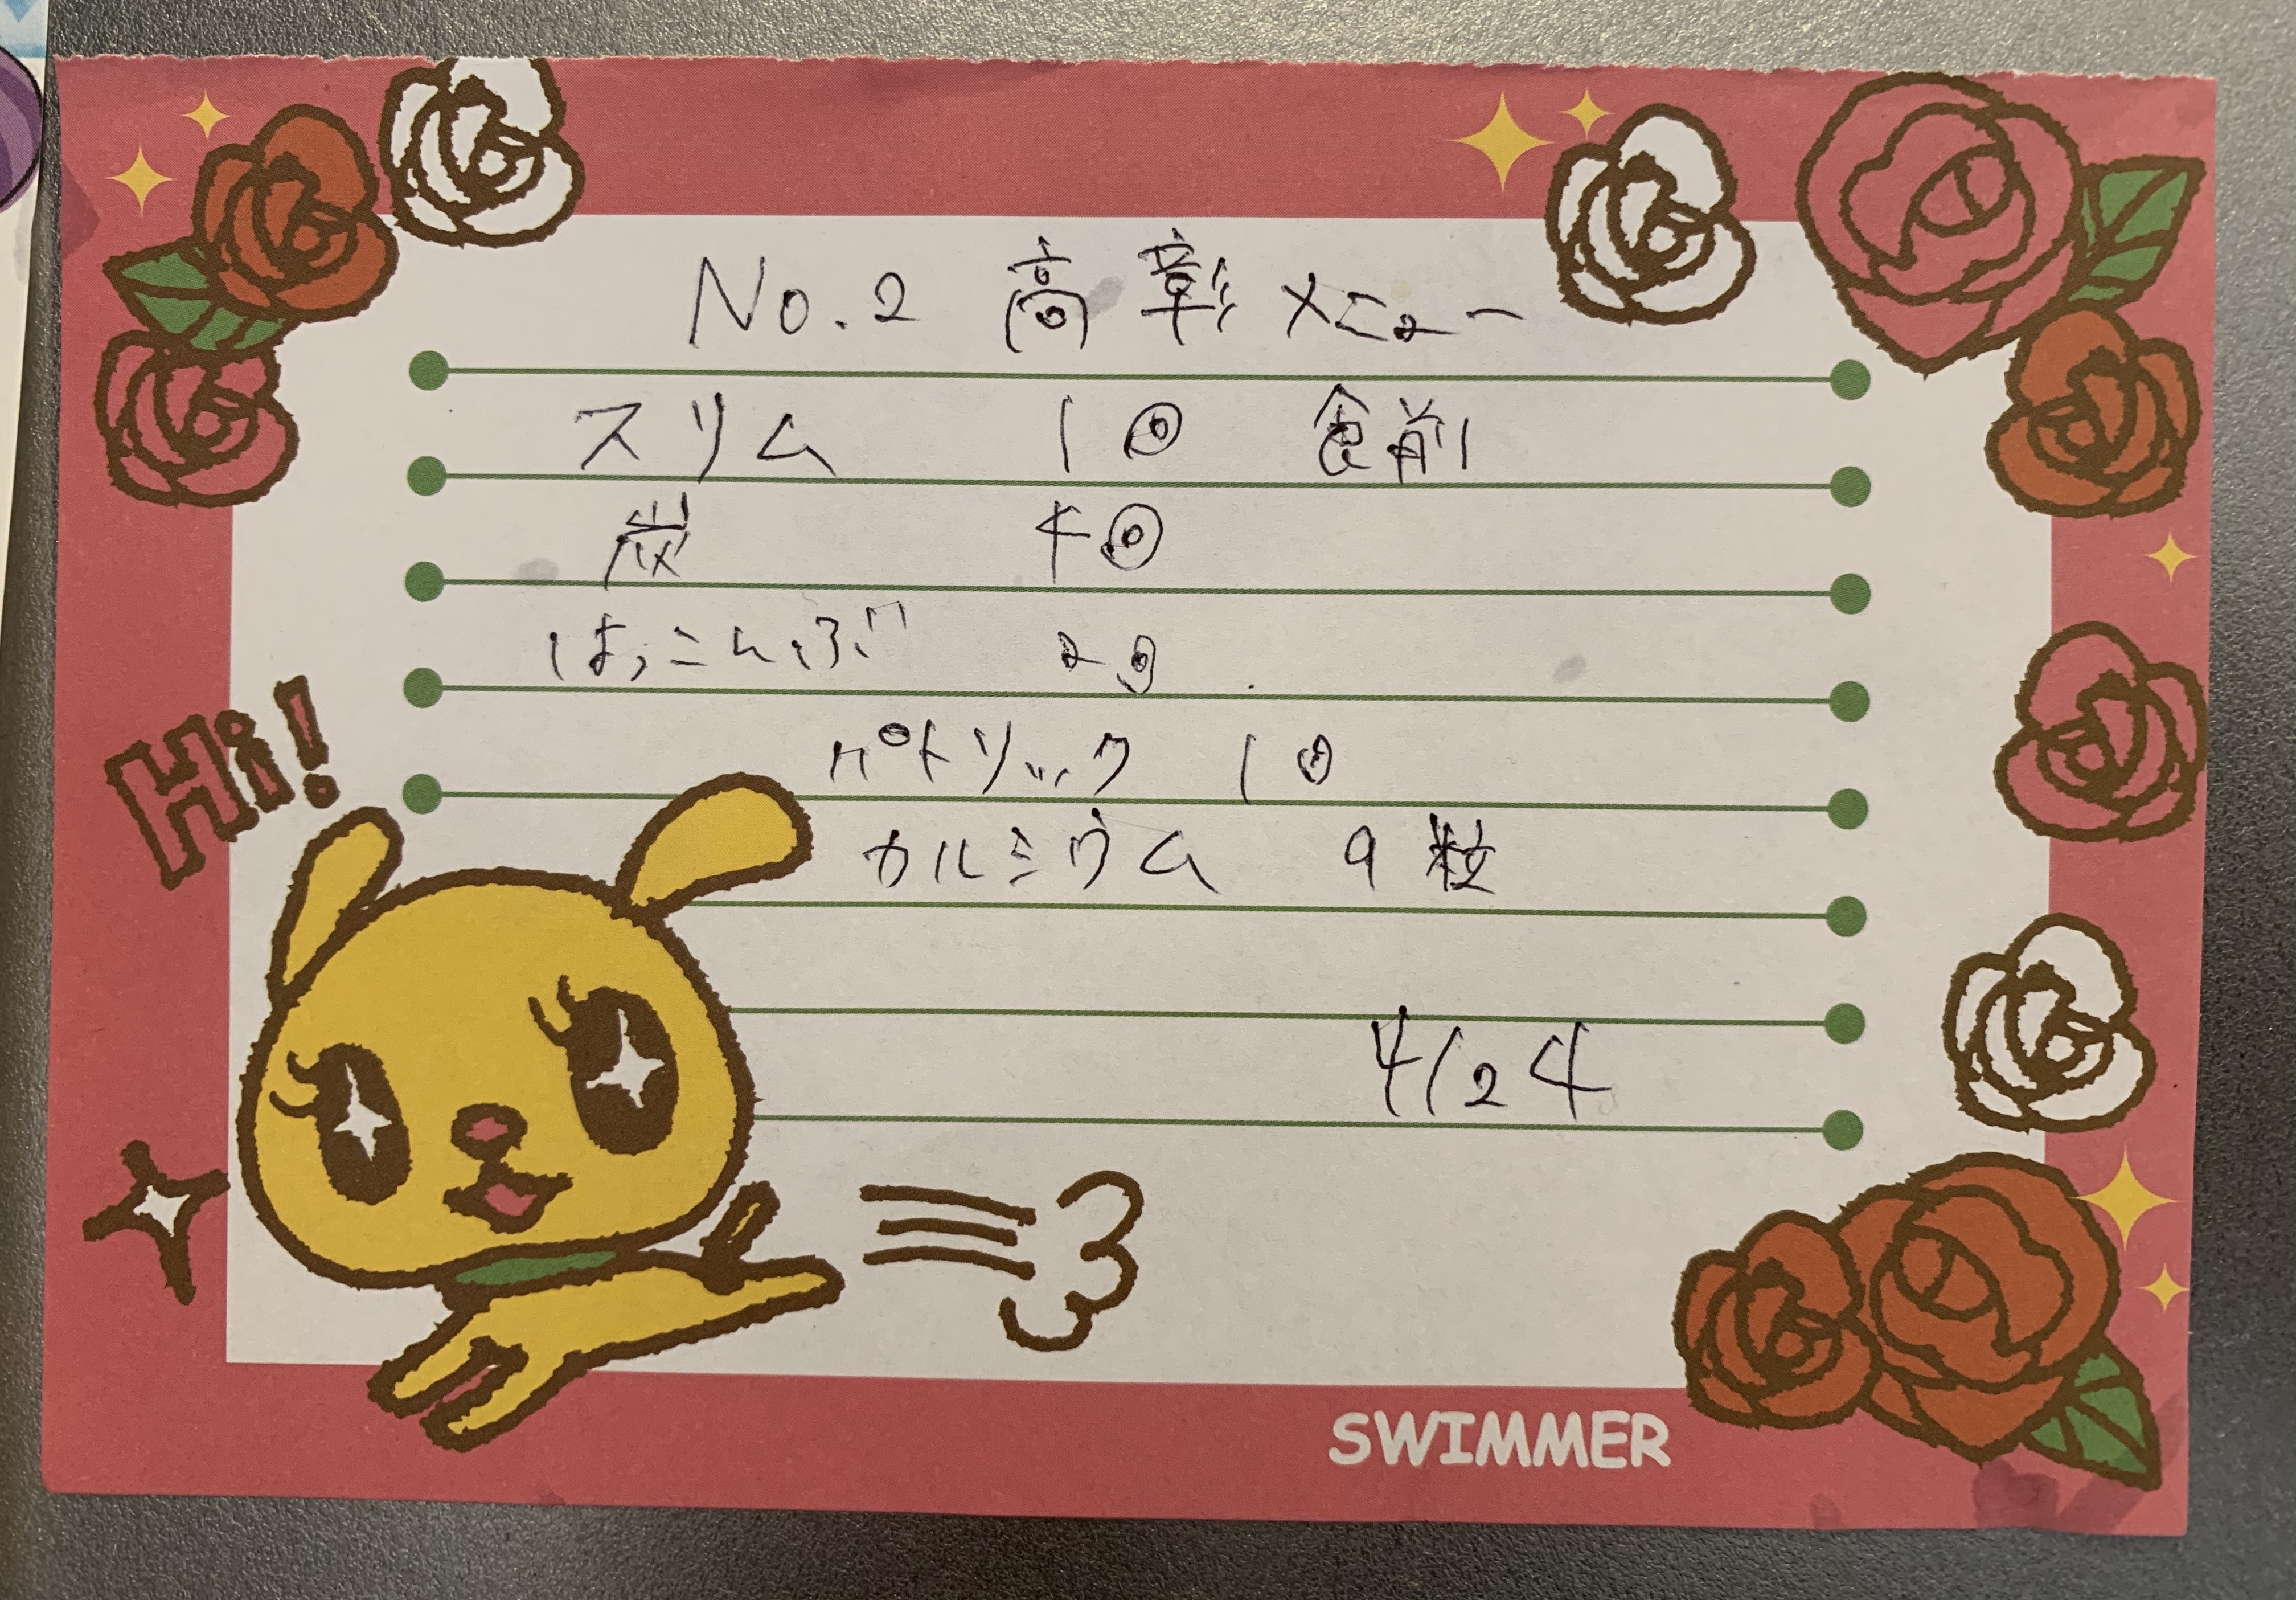 No.2 高彰メニュー
スリム 1回 食前
炭 4回
はっこんぶ 2回
Hi!
ペトリック 1回
カルシウム 9粒
4/24
SWIMMER